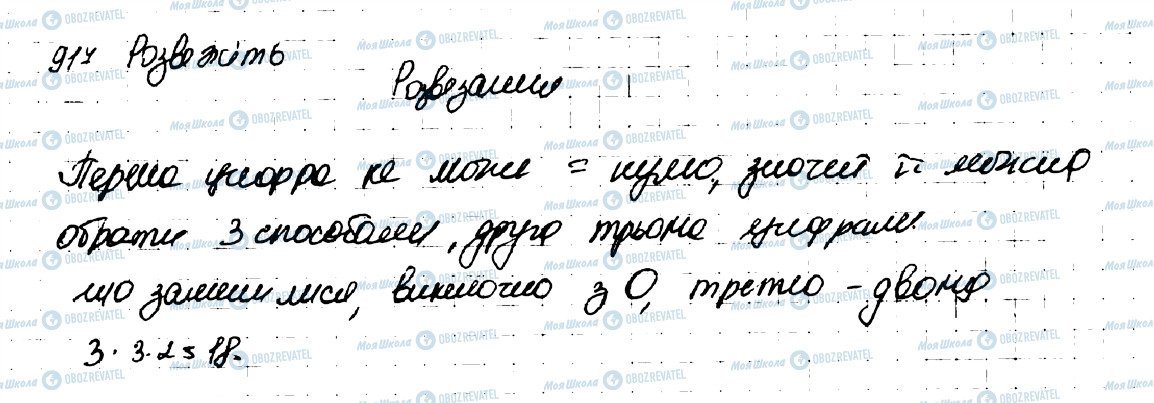 917 Розвежіть
Розвезання
Перша цифра не може = нулю, значит її можно
обрати 3 способами, друга трьома цифрами
що залишилися, включно з 0, третю - двома.
3 · 3 · 2 = 18.